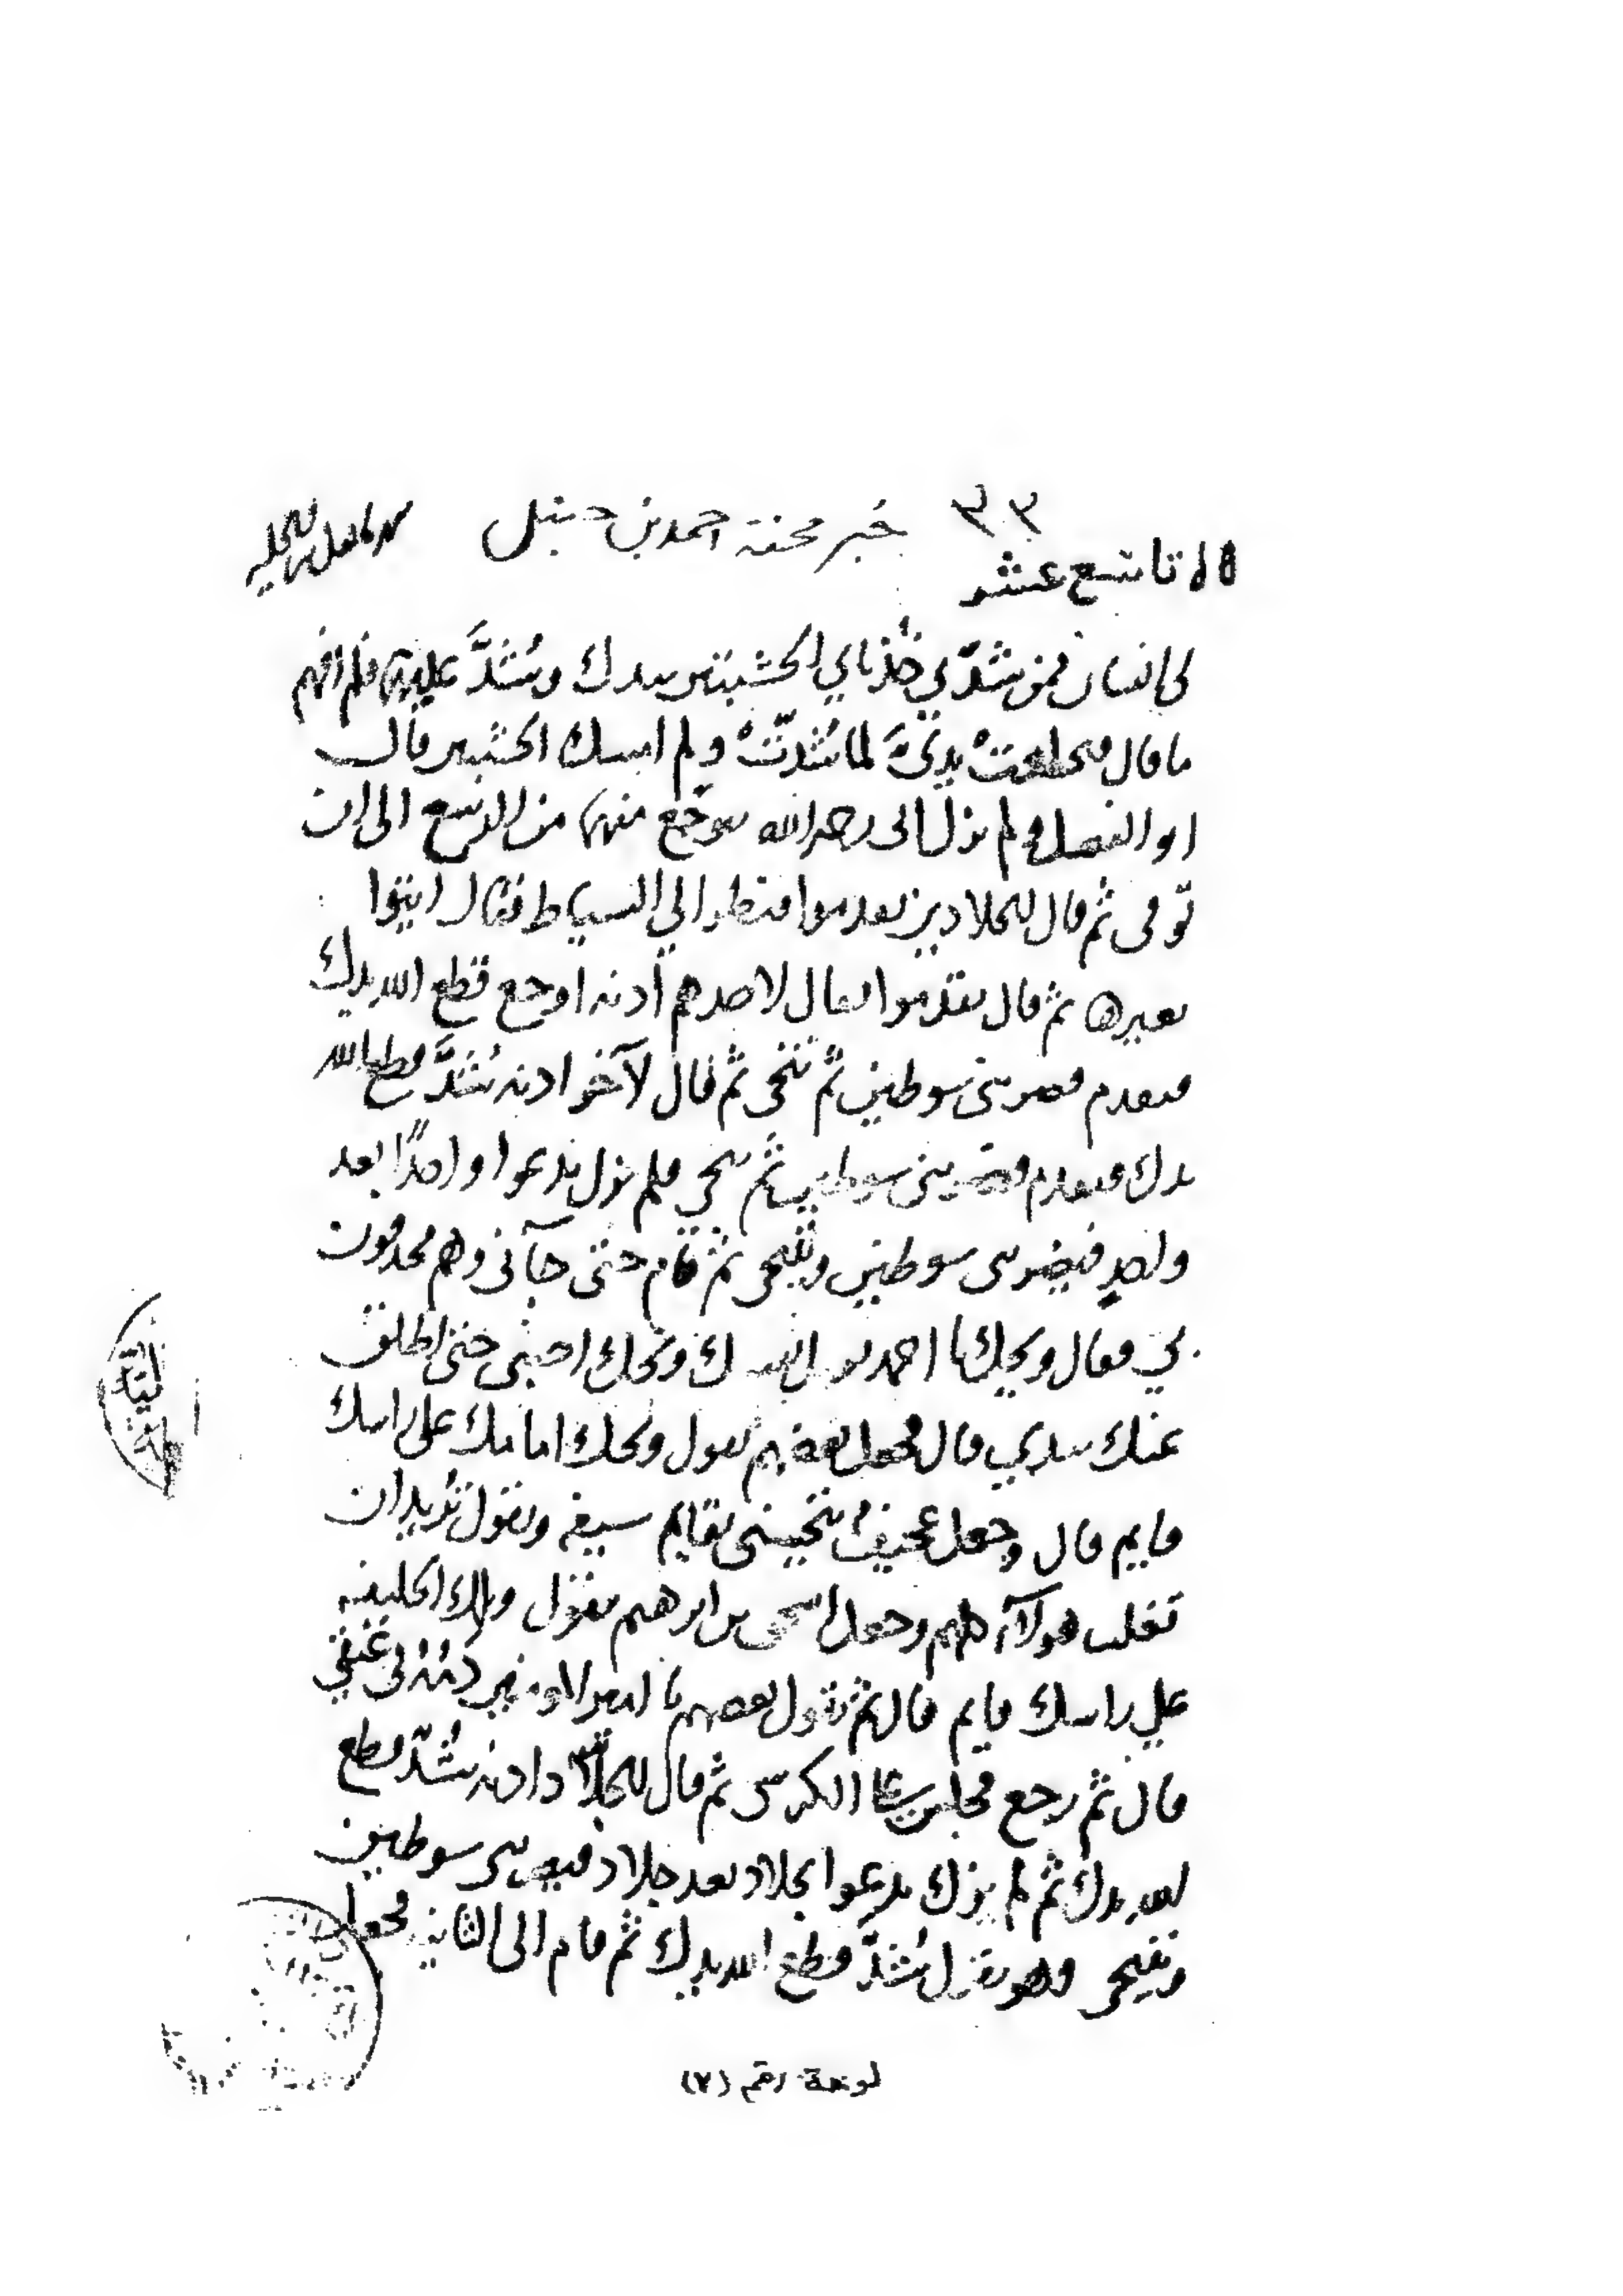 ٣٣
خبر محنة احمد بن حنبل
تاسع عشر
لي انسان ممن شدّني خذ ناي الخشبتين بيدك وشُدَّ عليهما فلم افهم
ما قال فتخلعت يديَّ لما شُددتُ ولم امسك الخشبتين قال
ابو الفضل ولم يزل ابي رحمه الله يتوجّع منهما من الرسغ الى ان
توفى ثم قال للجلادين تقدموا فنظر الي السياط فقال ايتوا
بغيرها ثم قال تقدّموا فقال لاحدهم أدنه اوجع قطع الله يدك
فتقدم فضربني سوطين ثم تنحى ثم قال لآخر ادنه شُدَّ قطع الله
يدك فتقدم فضربني سوطين ثم تنحى فلم يزل يدعوا واحدًا بعد
واحدٍ فيضربني سوطين ويتنحى ثم قام حتى جآنى وهم محدقون
بي فقال ويحك يا احمد تقتل نفسك ويحك اجبنى حتى اطلق
عنك بيدي قال فجعل بعضهم يقول ويحك امامك على راسك
قايم قال وجعل عجيفٌ ينخسنى بقايم سيفه ويقول تريد ان
تغلب هولآء كلهم وجعل اسحق بن ابرهيم يقول ويلك الخليفه
على راسك قايم قال ثم يقول بعضهم يا امير المومنين دمه فى عنقي
قال ثم رجع فجلس على الكرسى ثم قال للجلاّد ادنه شُدّ قطع
الله يدك ثم لم يزل يدعوا بجلاد بعد جلاد فيضربنى سوطين
ويتنحى وهو يقول شُدَّ قطع الله يدك ثم قام الى الثانيه فجعل
لوحة رقم (٧)